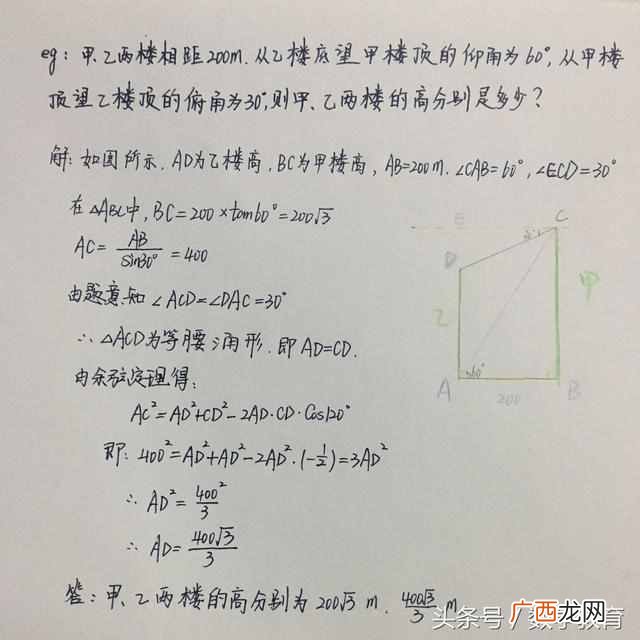 eg: 甲、乙两楼相距200m. 从乙楼底望甲楼顶的仰角为60°, 从甲楼
顶望乙楼顶的俯角为30°, 则甲、乙两楼的高分别是多少?
解: 如图所示. AD为乙楼高, BC为甲楼高, AB=200m. ∠CAB=60°, ∠ECD=30°
在△ABC中, BC=200×tan60°=200√3
AC= AB/sin30° =400
由题意知 ∠ACD=∠DAC=30°
∴ △ACD为等腰三角形. 即 AD=CD.
由余弦定理得:
AC²=AD²+CD²-2AD·CD·Cos120°
即: 400²=AD²+AD²-2AD²·(-1/2)=3AD²
∴ AD²= 400²/3
∴ AD= 400√3/3
答: 甲、乙两楼的高分别为 200√3 m. 400√3/3 m.
E
C
D
甲
乙
60°
A
B
200
头条号 / 数学教育
广西龙网